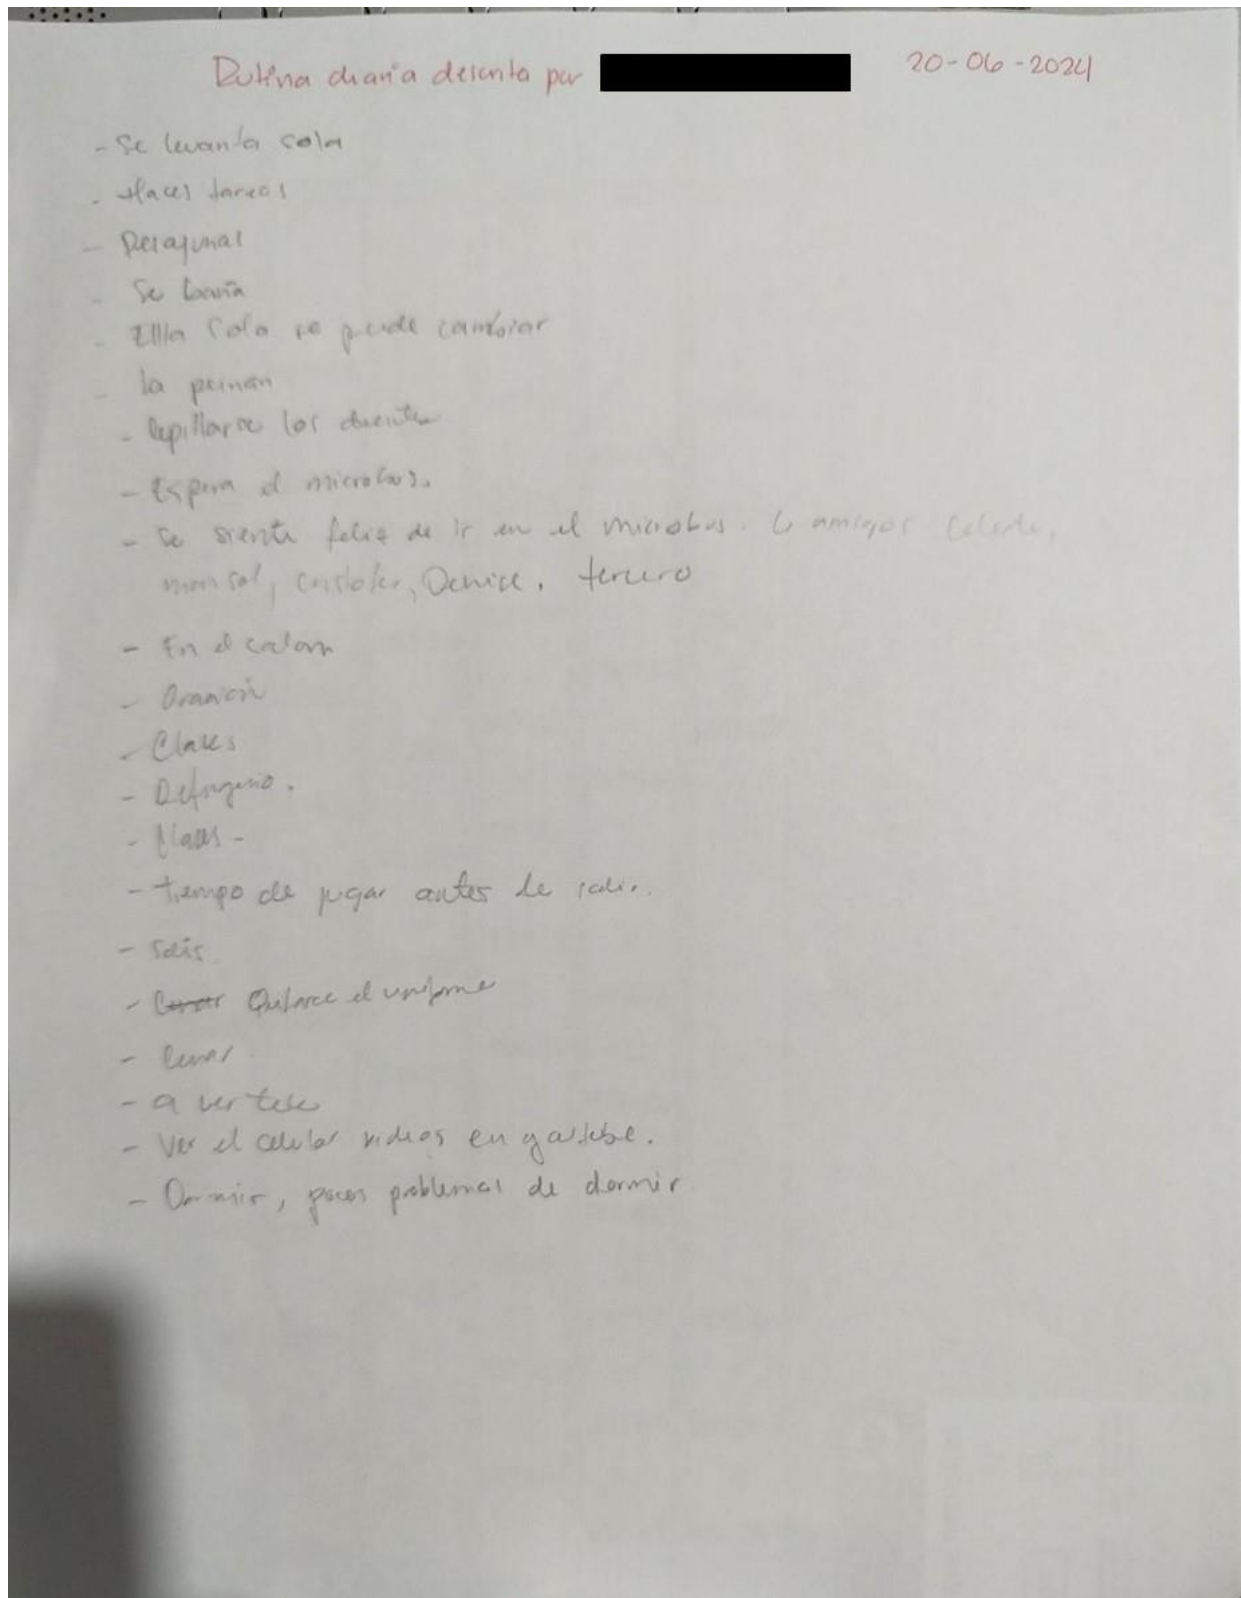 Rutina diaria descrita por 20-06-2024
- Se levanta sola
- Haces tareas
- Desayunar
- Se baña
- Ella sola se puede cambiar
- la peinan
- Cepillarse los dientes
- Espera el microbus.
- Se siente feliz de ir en el microbus. amigos Celeste,
Denice. tercero
- En el
- Oración
- Clases
- Refrigerio.
- Clases -
- tiempo de jugar antes de salir.
- Salir
- Quitarce el uniforme
- Cenar
- a ver tele
- Ver el celular videos en
- Dormir, pocos problemas de dormir.